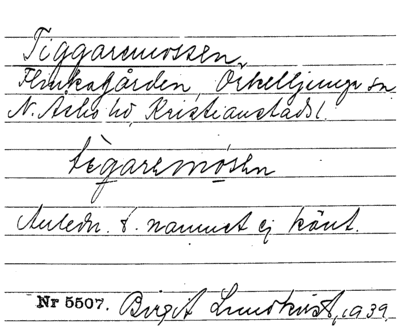 Tiggaremossen
Flinkagården, Örkelljunga sn
N. Åsbo hd, Kristianstads l.
tìgaremòsen
Anledn. t. namnet ej känt.
Nr 5507. Birgit Lundkvist, 1939.